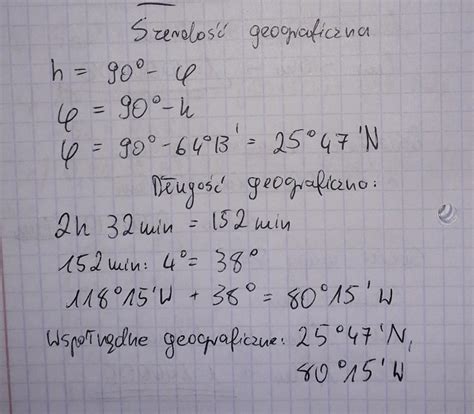 Szerokość geograficzna
h = 90° - φ
φ = 90° - h
φ = 90° - 64°13' = 25°47'N
Długość geograficzno:
2h 32min = 152 min
152min: 4° = 38°
118°15'W + 38° = 80°15'W
Współrzędne geograficzne: 25°47'N,
80°15'W